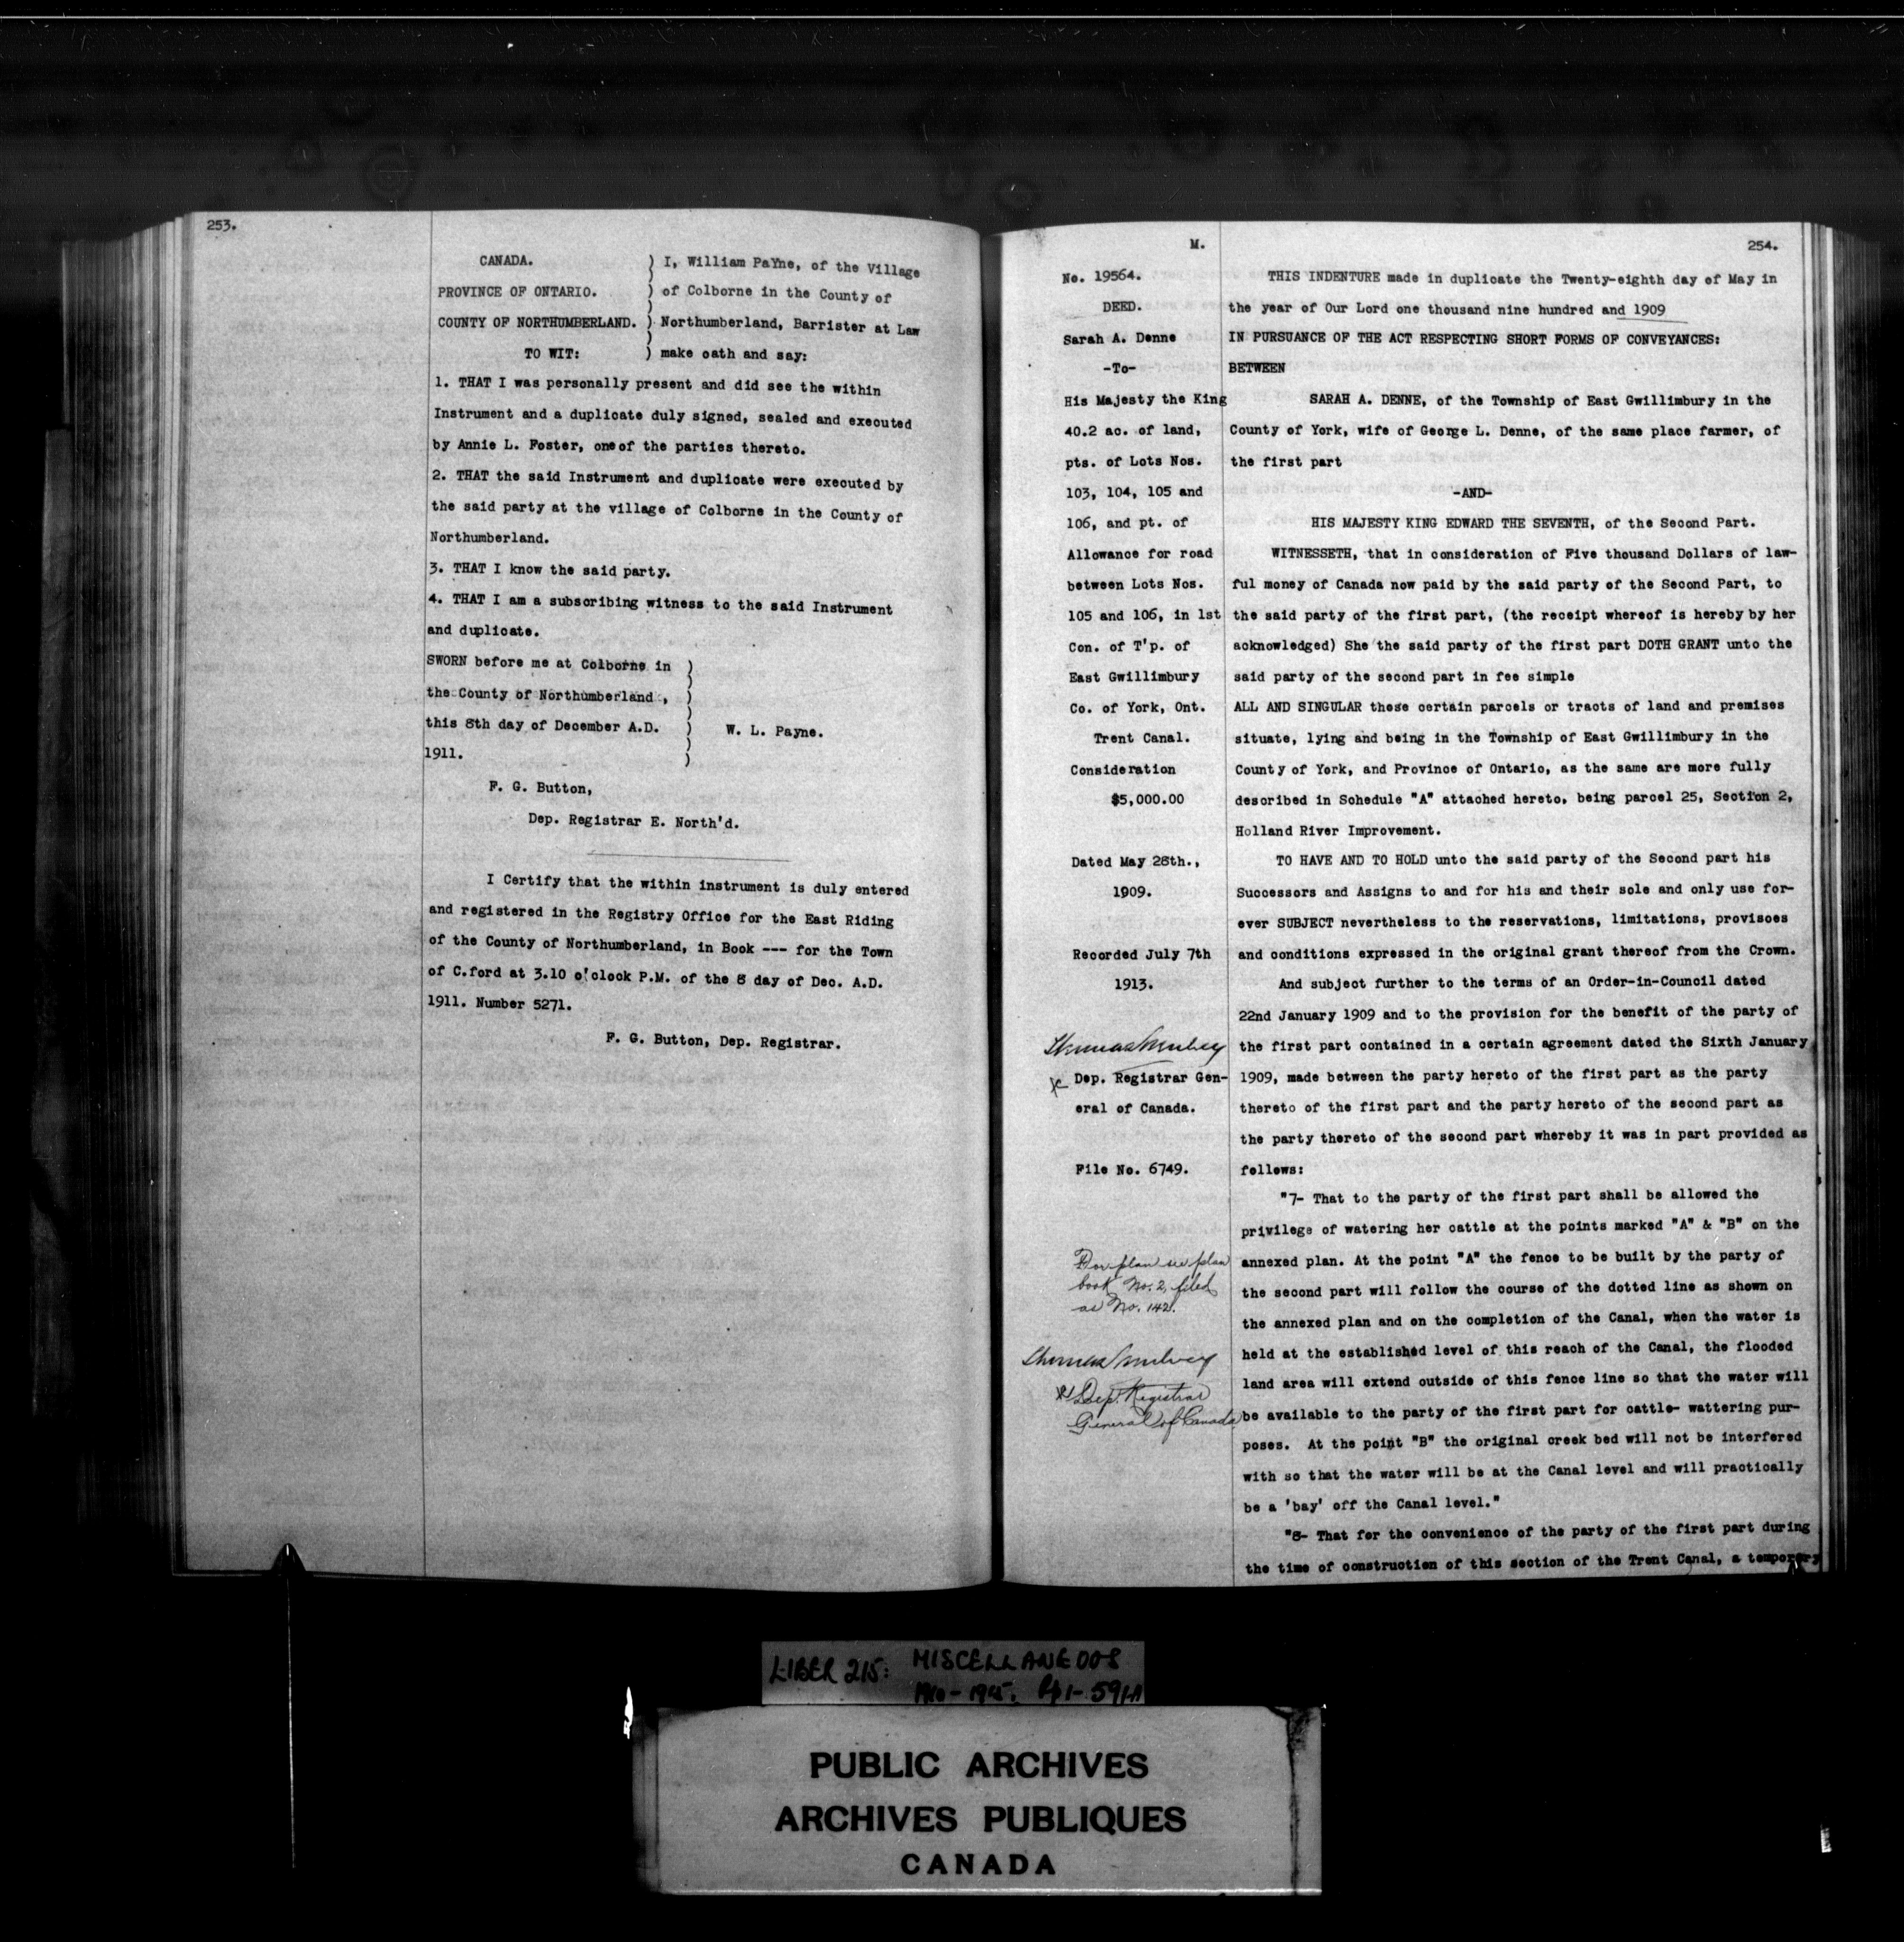 253.
CANADA.
PROVINCE OF ONTARIO.
COUNTY OF NORTHUMBERLAND.
TO WIT:
) I, William PaYne, of the Village
) of Colborne in the County of
) Northumberland, Barrister at Law
) make oath and say:
1. THAT I was personally present and did see the within
Instrument and a duplicate duly signed, sealed and executed
by Annie L. Foster, oneof the parties thereto.
2. THAT the said Instrument and duplicate were executed by
the said party at the village of Colborne in the County of
Northumberland.
3. THAT I know the said party.
4. THAT I am a subscribing witness to the said Instrument
and duplicate.
SWORN before me at Colborne in )
the County of Northumberland , )
this 8th day of December A.D. ) W. L. Payne.
1911. )
F. G. Button,
Dep. Registrar E. North'd.
I Certify that the within instrument is duly entered
and registered in the Registry Office for the East Riding
of the County of Northumberland, in Book --- for the Town
of C.ford at 3.10 o'clock P.M. of the 8 day of Dec. A.D.
1911. Number 5271.
F. G. Button, Dep. Registrar.
M.
254.
No. 19564.
DEED.
Sarah A. Denne
-To-
His Majesty the King
40.2 ac. of land,
pts. of Lots Nos.
103, 104, 105 and
106, and pt. of
Allowance for road
between Lots Nos.
105 and 106, in 1st
Con. of T'p. of
East Gwillimbury
Co. of York, Ont.
Trent Canal.
Consideration
$5,000.00
Dated May 28th.,
1909.
Recorded July 7th
1913.
Thomas Mulvey
Dep. Registrar Gen-
eral of Canada.
File No. 6749.
For plan see plan
book No. 2, filed
as No. 142.
Thomas Mulvey
Dep. Registrar
General of Canada
THIS INDENTURE made in duplicate the Twenty-eighth day of May in
the year of Our Lord one thousand nine hundred and 1909
IN PURSUANCE OF THE ACT RESPECTING SHORT FORMS OF CONVEYANCES:
BETWEEN
SARAH A. DENNE, of the Township of East Gwillimbury in the
County of York, wife of George L. Denne, of the same place farmer, of
the first part
-AND-
HIS MAJESTY KING EDWARD THE SEVENTH, of the Second Part.
WITNESSETH, that in consideration of Five thousand Dollars of law-
ful money of Canada now paid by the said party of the Second Part, to
the said party of the first part, (the receipt whereof is hereby by her
acknowledged) She the said party of the first part DOTH GRANT unto the
said party of the second part in fee simple
ALL AND SINGULAR these certain parcels or tracts of land and premises
situate, lying and being in the Township of East Gwillimbury in the
County of York, and Province of Ontario, as the same are more fully
described in Schedule "A" attached hereto, being parcel 25, Section 2,
Holland River Improvement.
TO HAVE AND TO HOLD unto the said party of the Second part his
Successors and Assigns to and for his and their sole and only use for-
ever SUBJECT nevertheless to the reservations, limitations, provisoes
and conditions expressed in the original grant thereof from the Crown.
And subject further to the terms of an Order-in-Council dated
22nd January 1909 and to the provision for the benefit of the party of
the first part contained in a certain agreement dated the Sixth January
1909, made between the party hereto of the first part as the party
thereto of the first part and the party hereto of the second part as
the party thereto of the second part whereby it was in part provided as
follows:
"7- That to the party of the first part shall be allowed the
privilege of watering her cattle at the points marked "A" & "B" on the
annexed plan. At the point "A" the fence to be built by the party of
the second part will follow the course of the dotted line as shown on
the annexed plan and on the completion of the Canal, when the water is
held at the established level of this reach of the Canal, the flooded
land area will extend outside of this fence line so that the water will
be available to the party of the first part for cattle- wattering pur-
poses. At the point "B" the original creek bed will not be interfered
with so that the water will be at the Canal level and will practically
be a 'bay' off the Canal level."
"8- That for the convenience of the party of the first part during
the time of construction of this section of the Trent Canal, a temporary
LIBER 215: MISCELLANEOUS
1910-1915. Pp 1-591A
PUBLIC ARCHIVES
ARCHIVES PUBLIQUES
CANADA